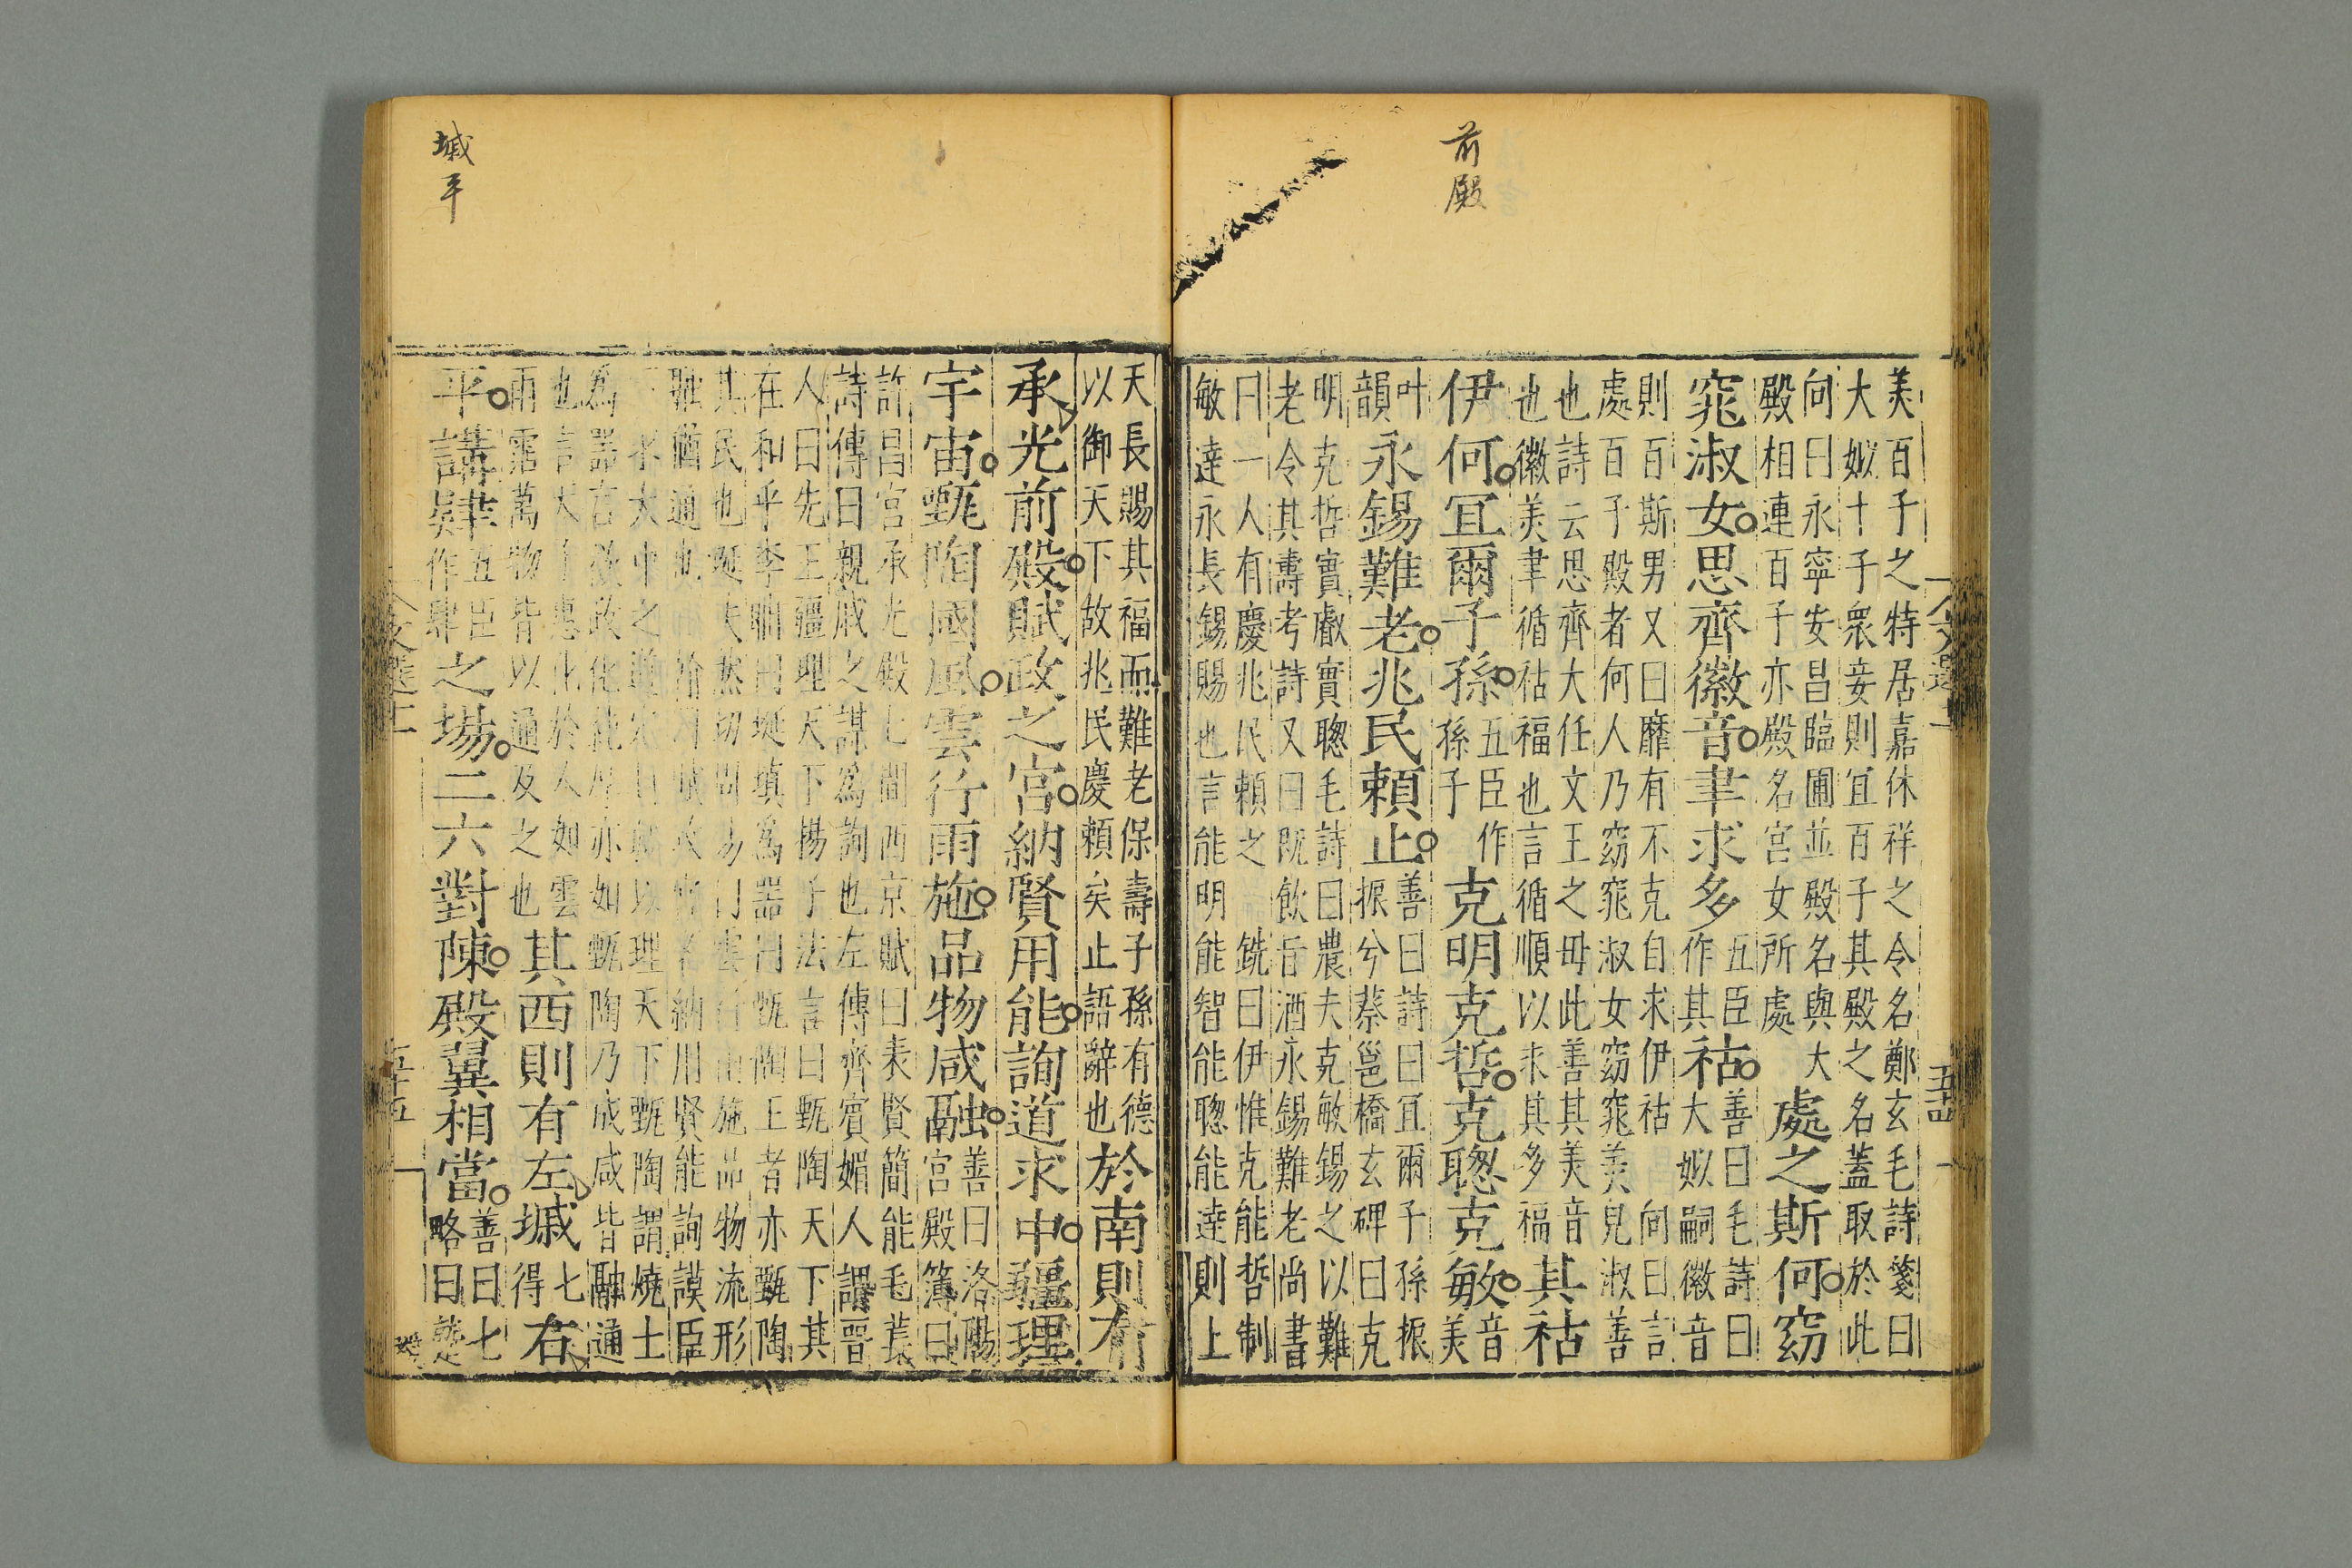 前殿
美百子之特居嘉休祥之令名鄭玄毛詩箋曰
大姒十子衆妾則宜百子其殿之名蓋取於此
向曰永寧安昌臨圃並殿名與大
殿相連百子亦殿名宮女所處
處之斯何窈
窕淑女思齊徽音聿求多
五臣
作其
祜
善曰毛詩曰
大姒嗣徽音
則百斯男又曰靡有不克自求伊祜 向曰言
處百子殿者何人乃窈窕淑女窈窕美皃淑善
也詩云思齊大任文王之毋此善其美音
也徽美聿循祜福也言循順以求其多福
其祜
伊何宜爾子孫
五臣作
孫子
克明克哲克聰克敏
音
美
叶
韻
永錫難老兆民賴止
善曰詩曰宜爾子孫振
振兮蔡邕橋玄碑曰克
明克哲實叡實聰毛詩曰農夫克敏錫之以難
老令其壽考詩又曰旣飲旨酒永錫難老尚書
曰一人有慶兆民賴之 銑曰伊惟克能哲制
敏達永長錫賜也言能明能智能聰能達則上
文選十一
五十四
天長賜其福而難老保壽子孫有德
以御天下故兆民慶賴矣止語辭也
於南則有
承光前殿賦政之宮納賢用能詢道求中疆理
宇宙甄陶國風雲行雨施品物咸融
善曰洛陽
宮殿簿曰
許昌宮承光殿七間西京賦曰表賢簡能毛萇
詩傳曰親戚之謀爲詢也左傳齊賓媚人謂晉
人曰先王疆理天下揚子法言曰甄陶天下其
在和乎李軌曰埏填爲器曰甄陶王者亦甄陶
其民也埏失然切周易曰雲行雨施品物流形
融猶通也 翰曰賦政宮名納用賢能詢謨臣
下求大中之道以理天下甄陶謂燒土
爲器言政化純厚亦如甄陶乃成咸皆融通
也言天子惠化於人如雲
雨霑萬物皆以通及之也
其西則有左墄
七
得
右
平講肄
五臣
吳作肆
之場二六對陳殿翼相當
善曰七
略曰蹵
墄平
文選十一
五十五